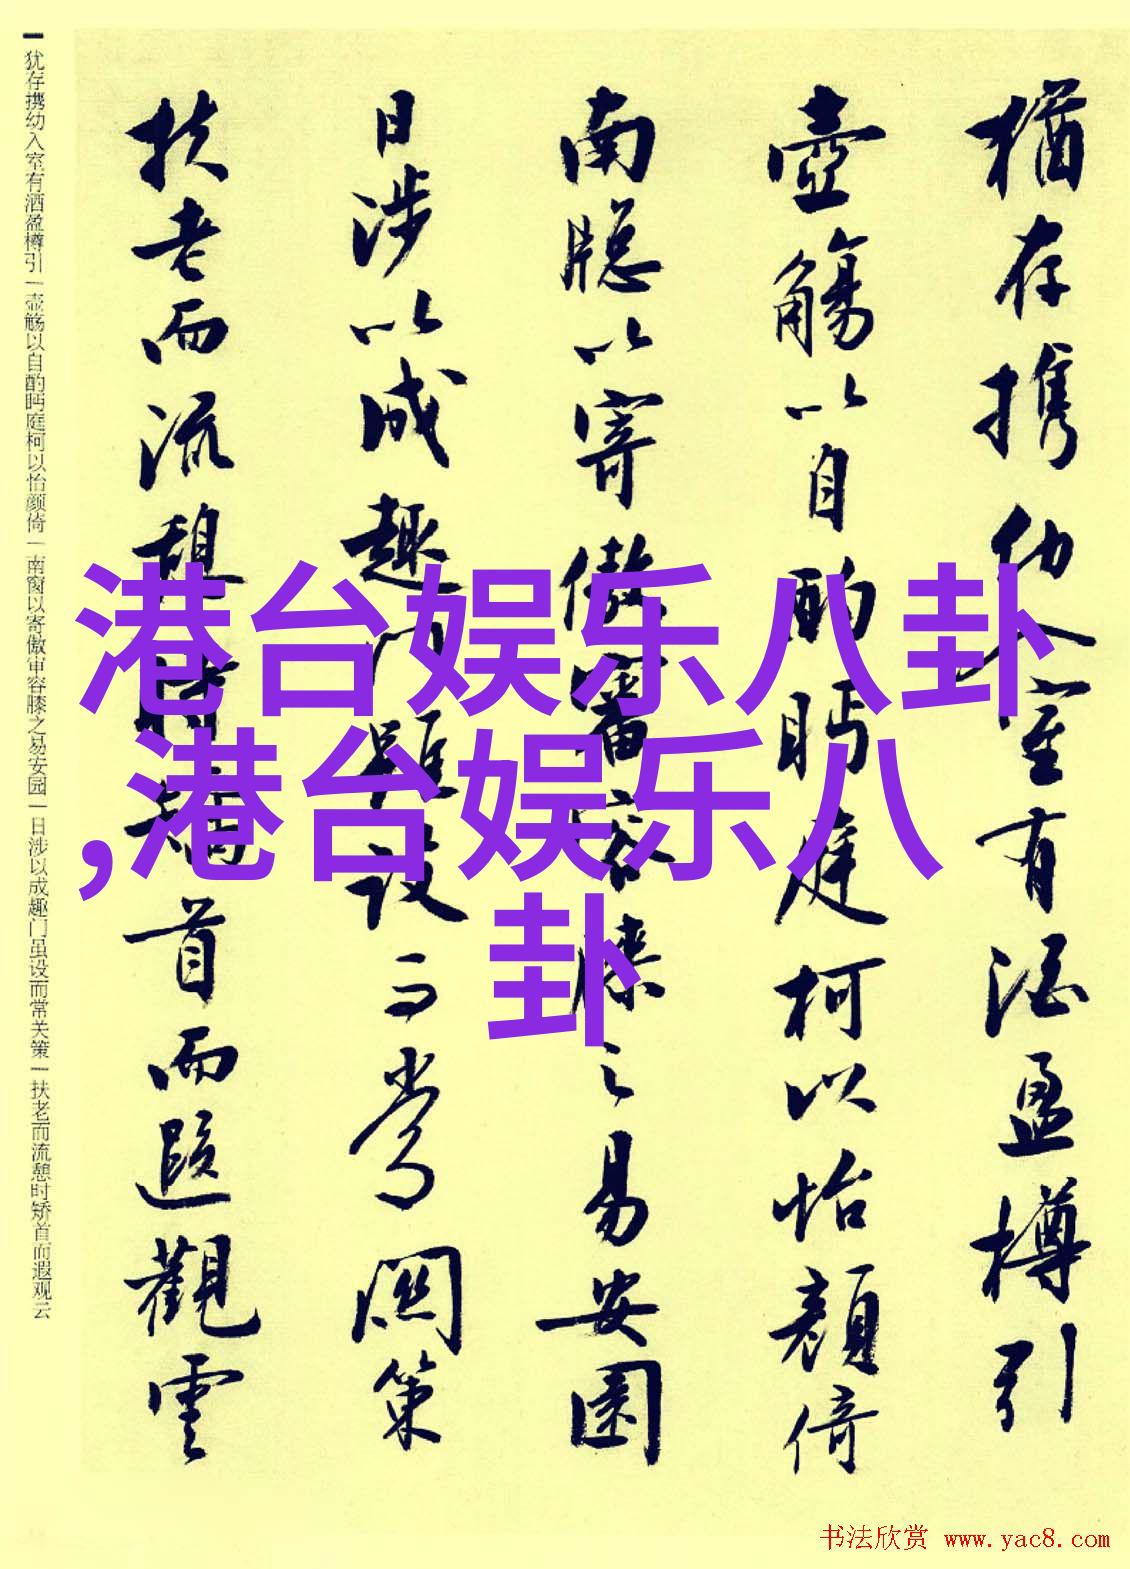 犹存携幼入室有酒盈樽引一壶觞以自酌眄庭柯以怡颜倚一南窗以寄傲审容膝之易安园一日涉以成趣门虽设而常关策一扶老而流憩时矫首而遐观云
猶存携幼入室有酒盈樽引
壺觴以自酌眄庭柯以怡顔倚
南牎以寄傲審容膝之易安園
日涉以成趣門雖設而常關策
扶老而流憩時矯首而遐觀雲
港台娱乐八卦
,港台娱乐八
卦
书法欣赏 www.yac8.com